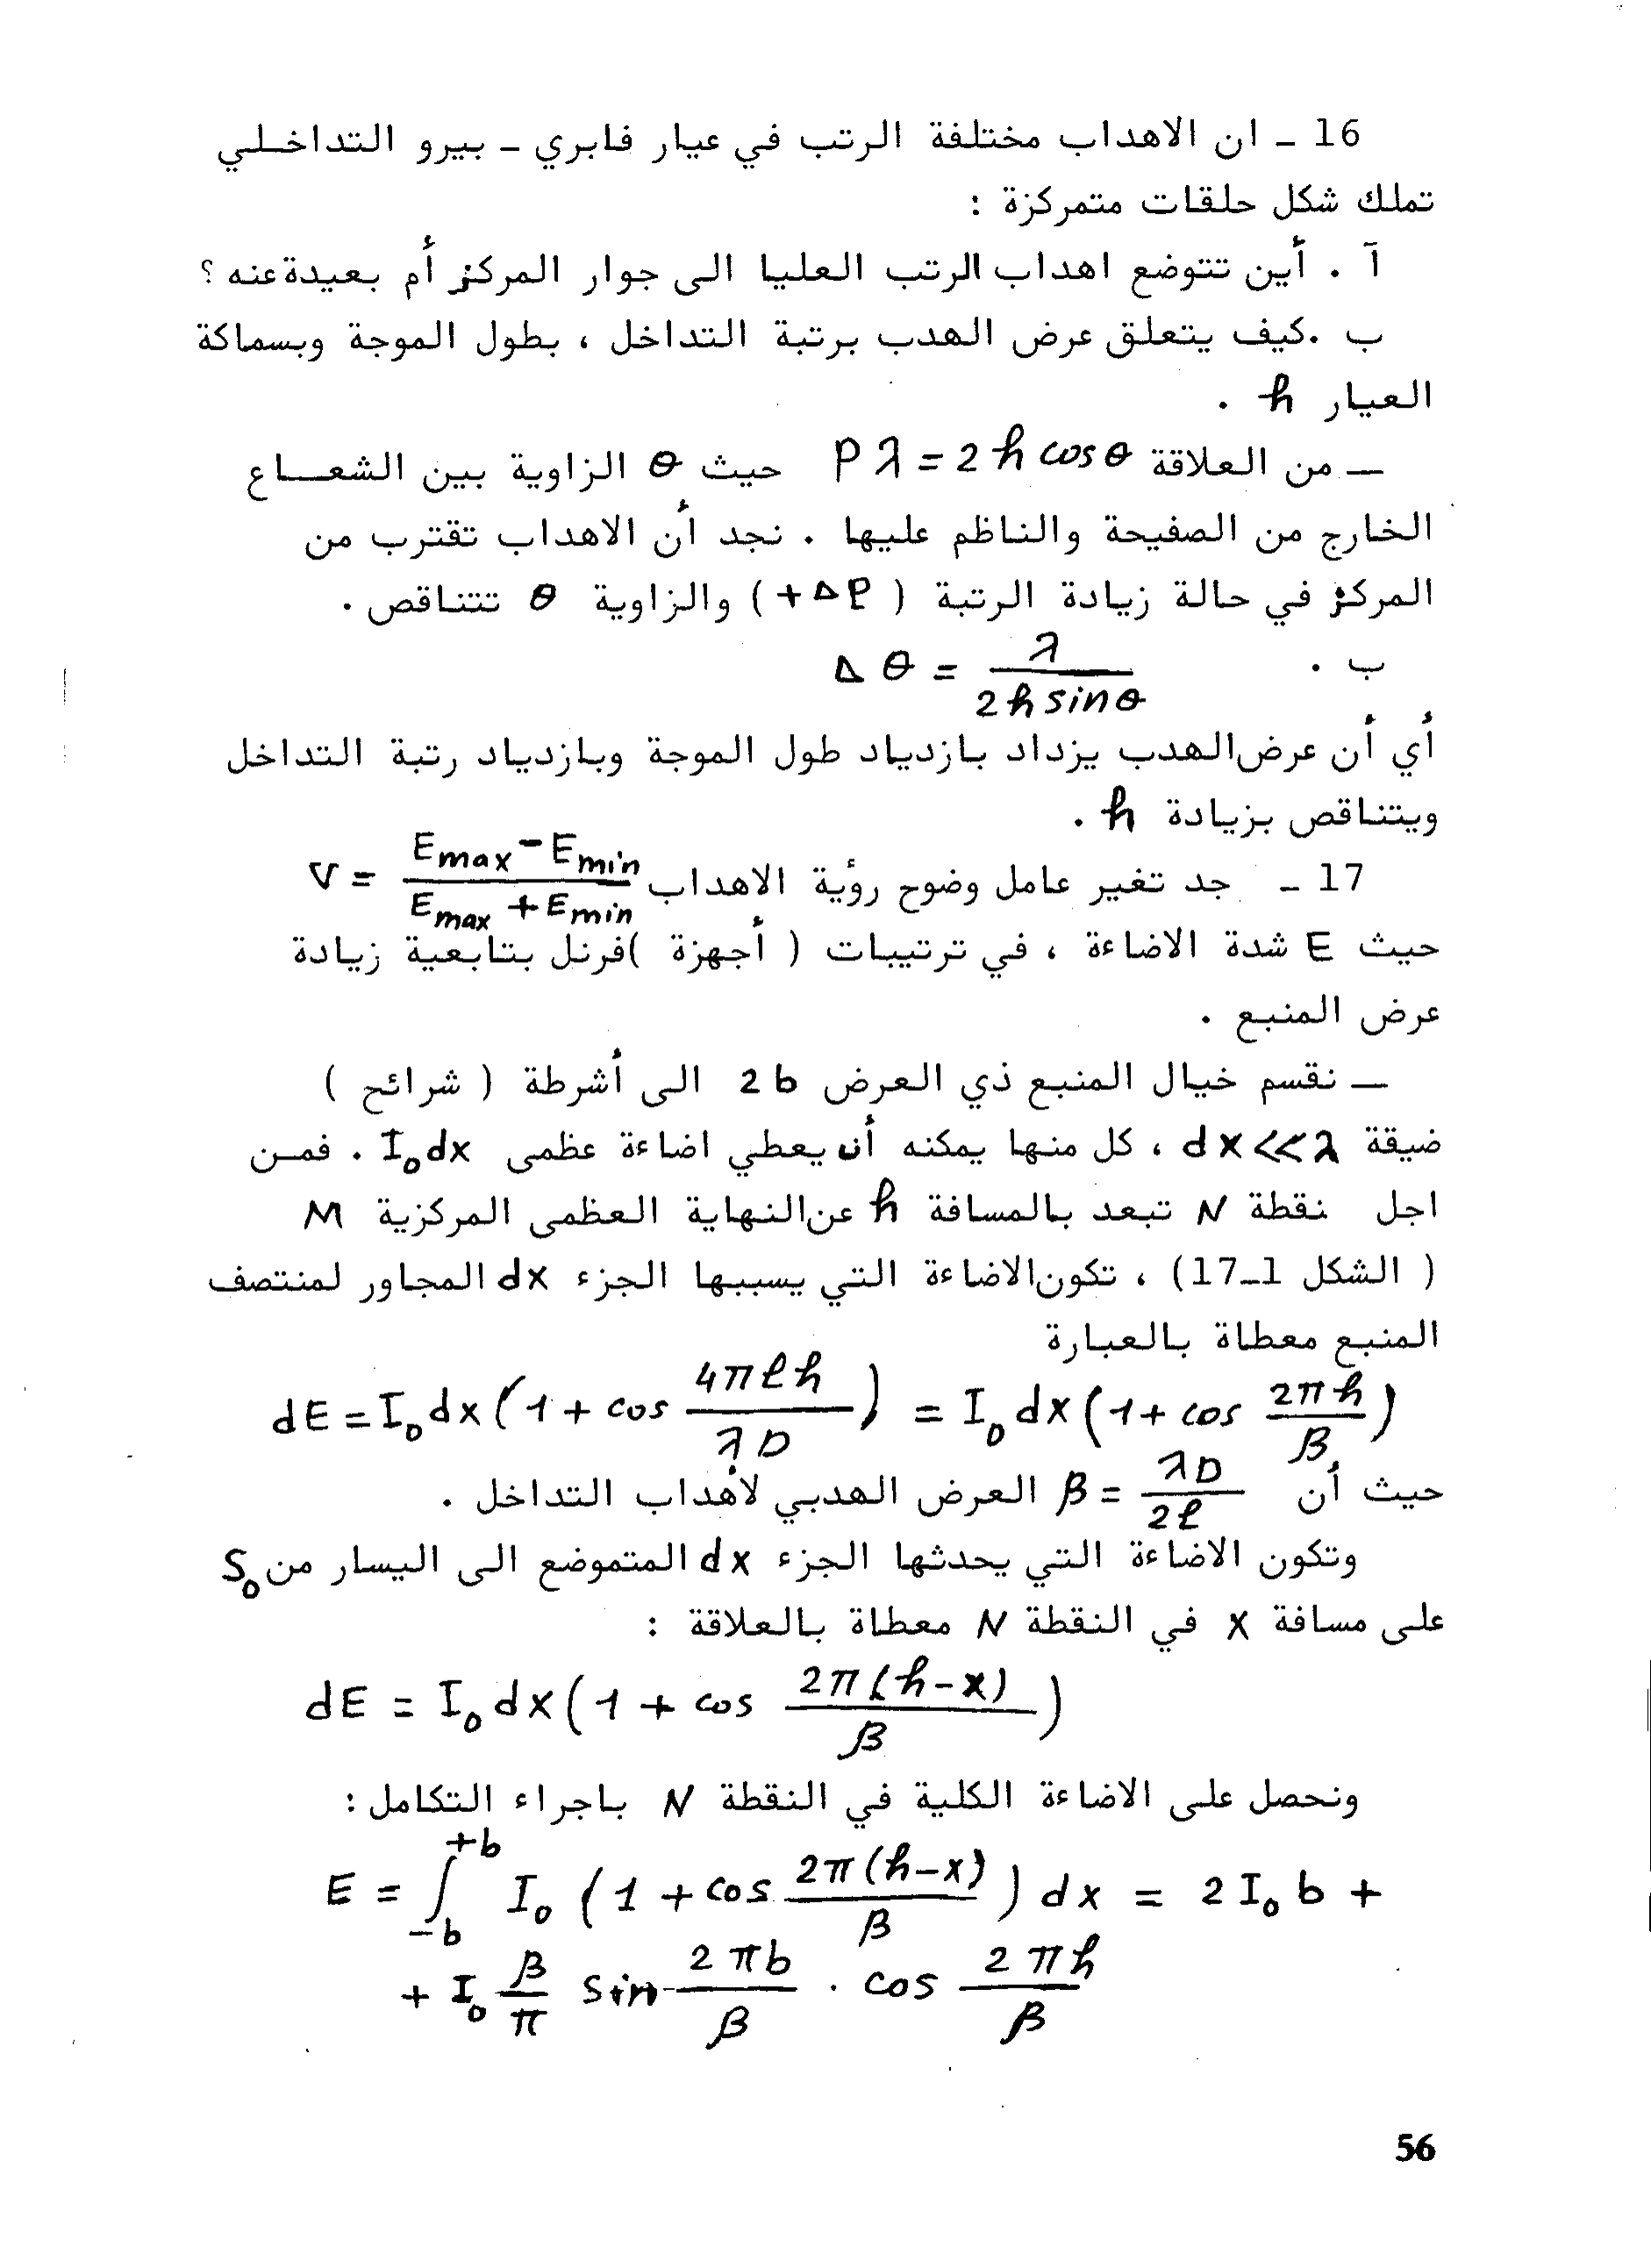 16 - ان الاهداب مختلفة الرتب في عيار فابري - بيرو التداخـلي
تملك شكل حلقات متمركزة :
آ . أين تتوضع اهداب الرتب العليا الى جوار المركز أم بعيدة عنه ؟
ب .كيف يتعلق عرض الهدب برتبة التداخل ، بطول الموجة وبسماكة
العيار h .
— من العلاقة Pλ = 2 h cos θ حيث θ الزاوية بين الشعـــاع
الخارج من الصفيحة والناظم عليها . نجد أن الاهداب تقترب من
المركز في حالة زيادة الرتبة ( +ΔP ) والزاوية θ تتناقص .
ب . Δθ = λ / (2 h sin θ)
أي أن عرض الهدب يزداد بازدياد طول الموجة وبازدياد رتبة التداخل
ويتناقص بزيادة h .
17 - جد تغير عامل وضوح رؤية الاهداب V = (Emax - Emin) / (Emax + Emin)
حيث E شدة الاضاءة ، في ترتيبات ( أجهزة )فرنل بتابعية زيادة
عرض المنبع .
— نقسم خيال المنبع ذي العرض 2 b الى أشرطة ( شرائح )
ضيقة dx << λ ، كل منها يمكنه أن يعطي اضاءة عظمى I₀dx . فمـن
اجل نقطة N تبعد بالمسافة h عن النهاية العظمى المركزية M
( الشكل 1-17) ، تكون الاضاءة التي يسببها الجزء dx المجاور لمنتصف
المنبع معطاة بالعبارة
dE = I₀ dx (1 + cos 4πℓh / λD) = I₀ dx (1 + cos 2πh / β)
حيث أن β = λD / 2ℓ العرض الهدبي لأهداب التداخل .
وتكون الاضاءة التي يحدثها الجزء dx المتموضع الى اليسار من S₀
على مسافة x في النقطة N معطاة بالعلاقة :
dE = I₀ dx (1 + cos 2π(h-x) / β)
ونحصل على الاضاءة الكلية في النقطة N باجراء التكامل :
E = ∫₋b⁺b I₀ (1 + cos 2π(h-x) / β) dx = 2 I₀ b +
+ I₀ β/π sin 2πb/β . cos 2πh/β
56